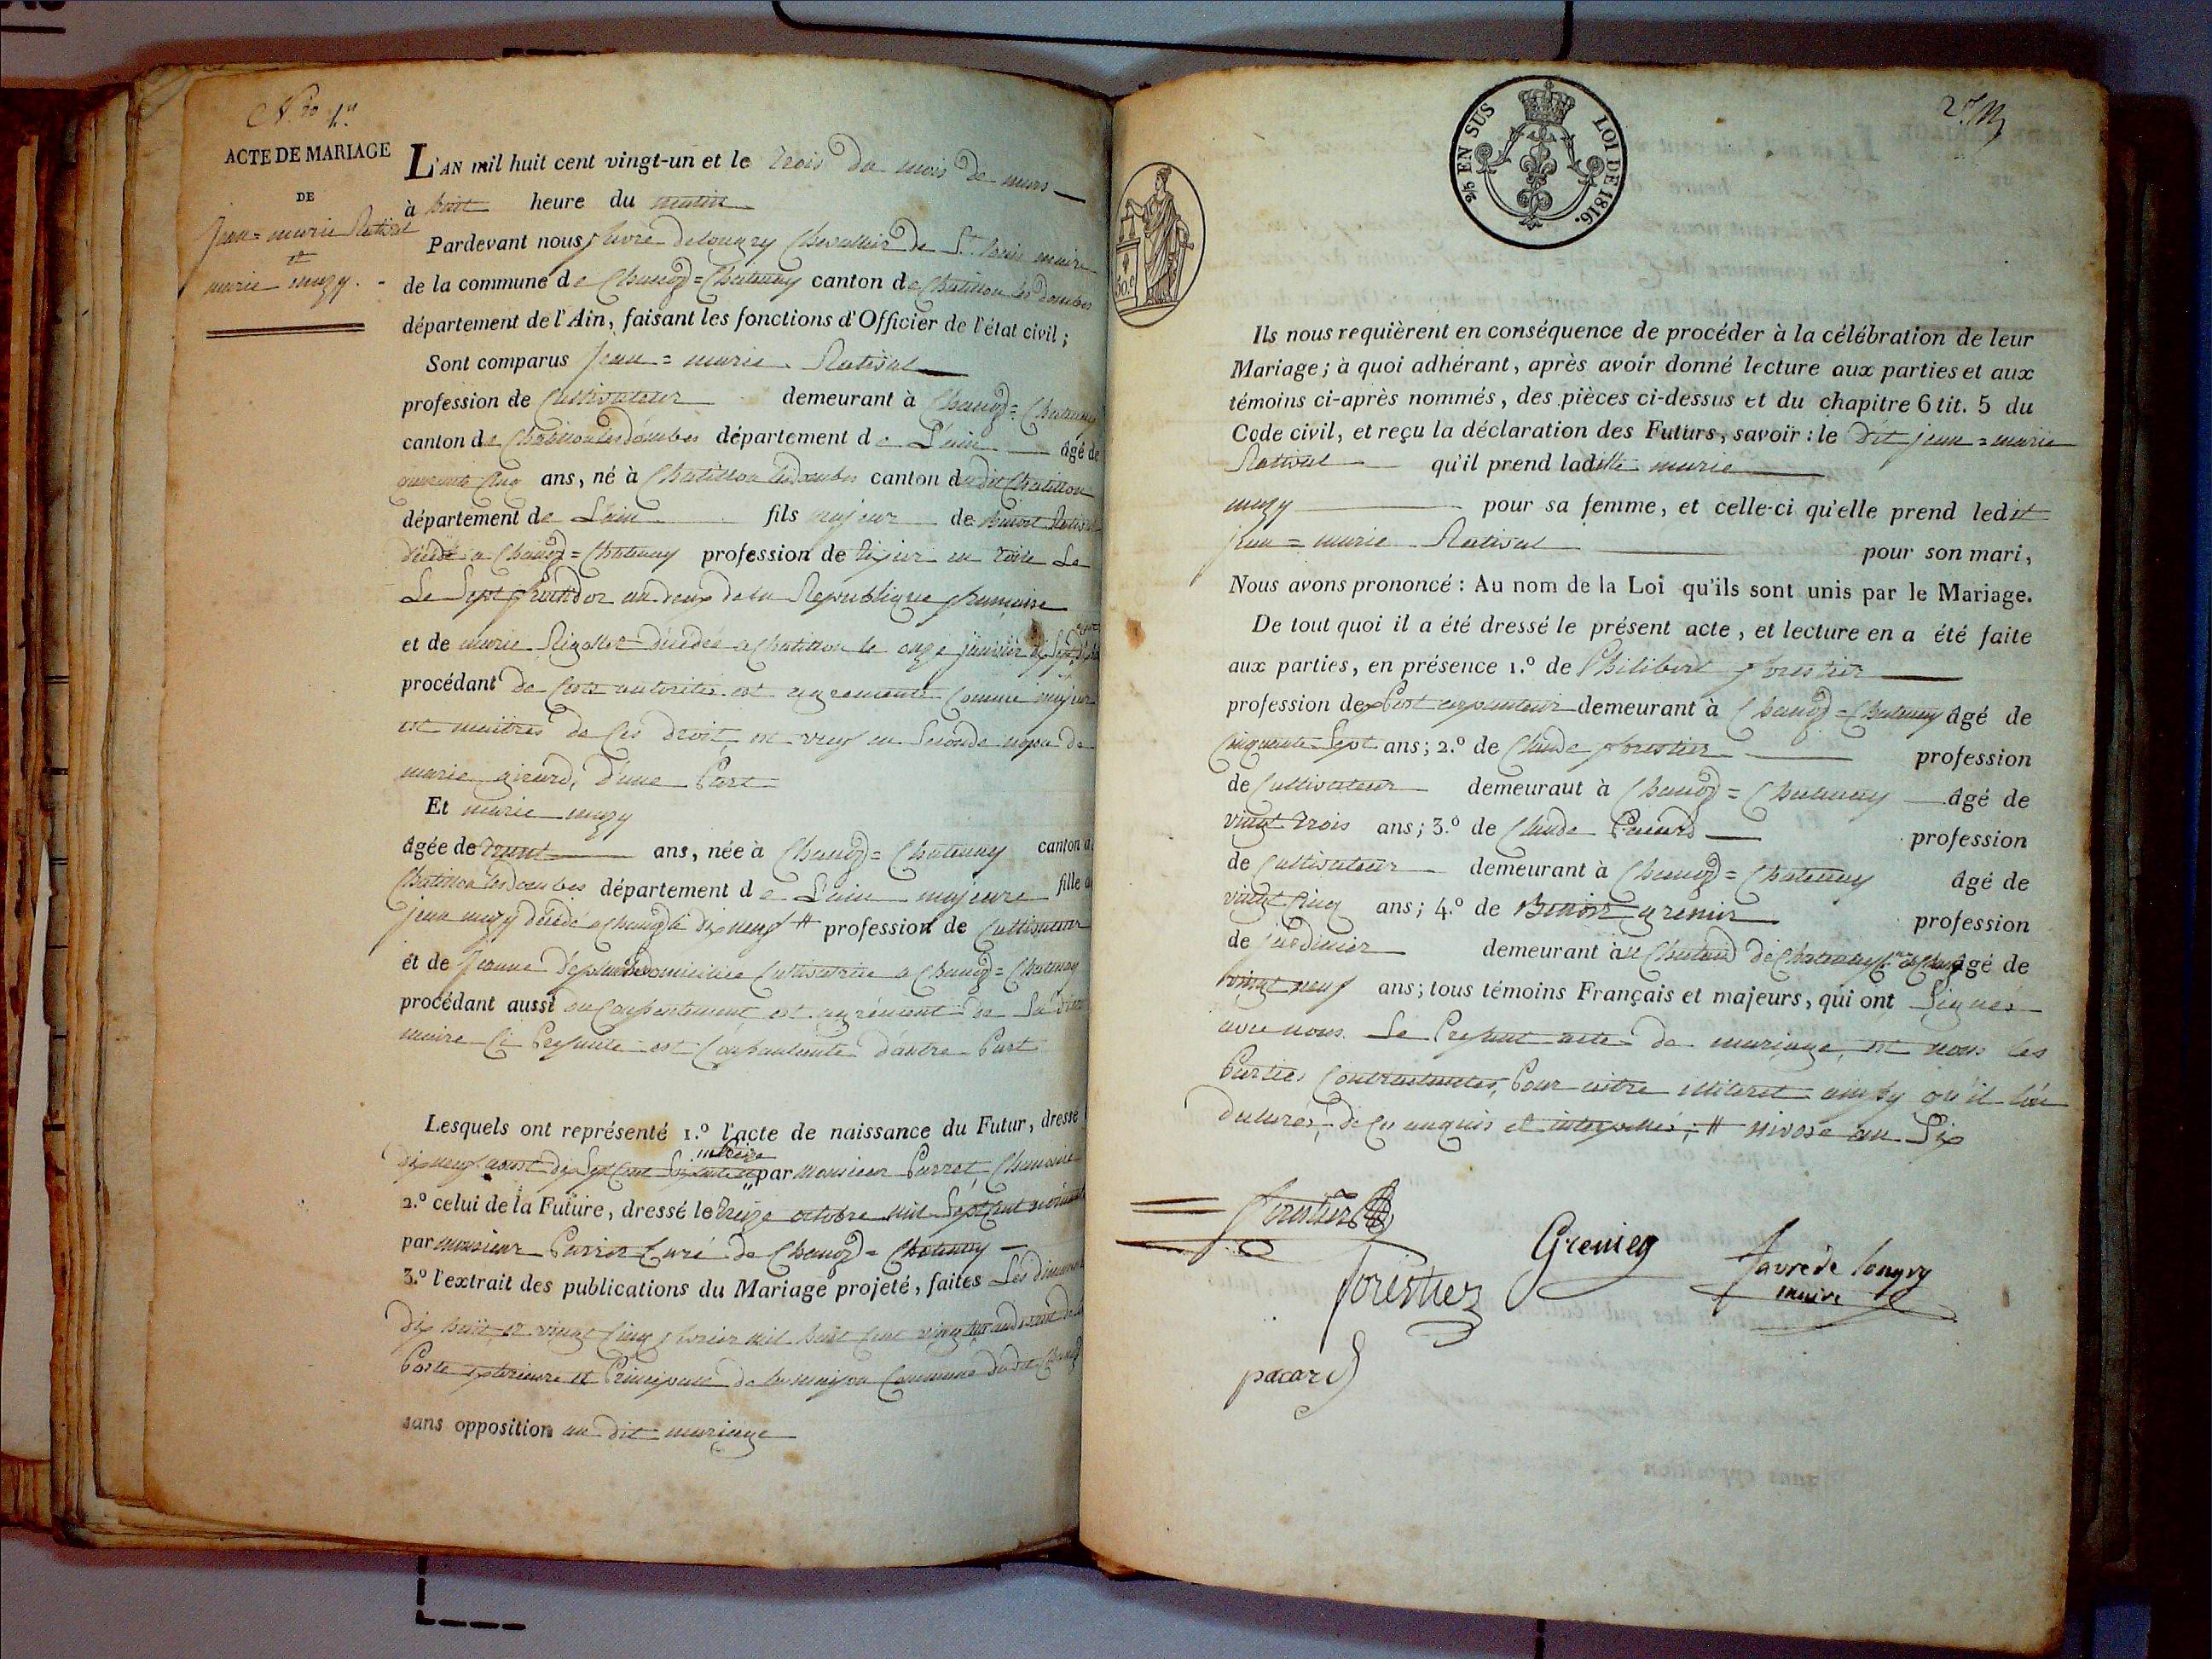 N.ro 1.er
ACTE DE MARIAGE
DE
Jean = marie Rativel
et
marie muzy.
L'AN mil huit cent vingt-un et le trois du mois de mars
à huit heure du matin
Pardevant nous favre delongry Chevallier de St. Louis maire
de la commune de Chanoz = Chatenay canton de Chatillon les dombes
département de l'Ain, faisant les fonctions d'Officier de l'état civil ;
Sont comparus Jean = marie
profession de Cultivateur demeurant à Chanoz = Chatenay
canton de Chatillon les dombes département de L'ain âgé de
quarante Cinq ans, né à Chatillon les dombes canton dudit Chatillon
département de L'ain fils majeur de Benoit
décédé a Chanoz = Chatenay profession de en toile Le
Le Sept an deux de la Republique française
et de marie décédée a Chatillon le onze janvier
procédant de Ces autorités et agrement Comme majeur
et maitres de Ces droit, et veuf en Seconde nopce de
marie girard, d'une Part
Et marie muzy
âgée de trent ans, née à Chanoz = Chatenay canton de
Chatillon les dombes département de L'ain majeure fille de
jean muzy décédé a Chanoz le dix neuf # profession de Cultivateur
et de Jeanne domiciliée Cultivatrice a Chanoz = Chatenay
procédant aussi du Consentement et agrément de Sa dite
maire Ci Presente et Consentante d'autre Part
Lesquels ont représenté 1.º l'acte de naissance du Futur, dressé
dix neuf aoust dix Sept Cent Soixante par monsieur Chanoine
2.º celui de la Future, dressé le treize octobre mil Sept Cent
par monsieur Curé de Chanoz = Chatenay
3.º l'extrait des publications du Mariage projeté, faites Les dimanche
dix huit et vingt Cinq fevrier mil huit Cent vingt un
Porte exterieure et Principale de la maison Commune dudit Chanoz
sans opposition au dit mariage
2/5 EN SUS LOI DE 1816.
50.c
2.e M
Ils nous requièrent en conséquence de procéder à la célébration de leur
Mariage ; à quoi adhérant, après avoir donné lecture aux parties et aux
témoins ci-après nommés, des pièces ci-dessus et du chapitre 6 tit. 5 du
Code civil, et reçu la déclaration des Futurs, savoir : le dit jean = marie
Rativel qu'il prend laditte marie
muzy pour sa femme, et celle-ci qu'elle prend ledit
jean = marie Rativel pour son mari,
Nous avons prononcé : Au nom de la Loi qu'ils sont unis par le Mariage.
De tout quoi il a été dressé le présent acte, et lecture en a été faite
aux parties, en présence 1.º de Philibert forestier
profession de demeurant à Chanoz = Chatenay âgé de
Cinquante Sept ans ; 2.º de Claude forestier profession
de Cultivateur demeuraut à Chanoz = Chatenay âgé de
vingt trois ans ; 3.º de Claude Pacard profession
de Cultivateur demeurant à Chanoz = Chatenay âgé de
vingt Cinq ans ; 4.º de Benoit grenier profession
de jardinier demeurant à Chatenay âgé de
vingt neuf ans ; tous témoins Français et majeurs, qui ont Signés
avec nous Le Present acte de mariage, et nous les
Parties Contractantes, Pour être illiteret ainsy qu'il l'on
declarés, de Ce enquis et interpellés, # nivose an Six
forestier
Grenier
favre de longry
maire
forestier
pacard